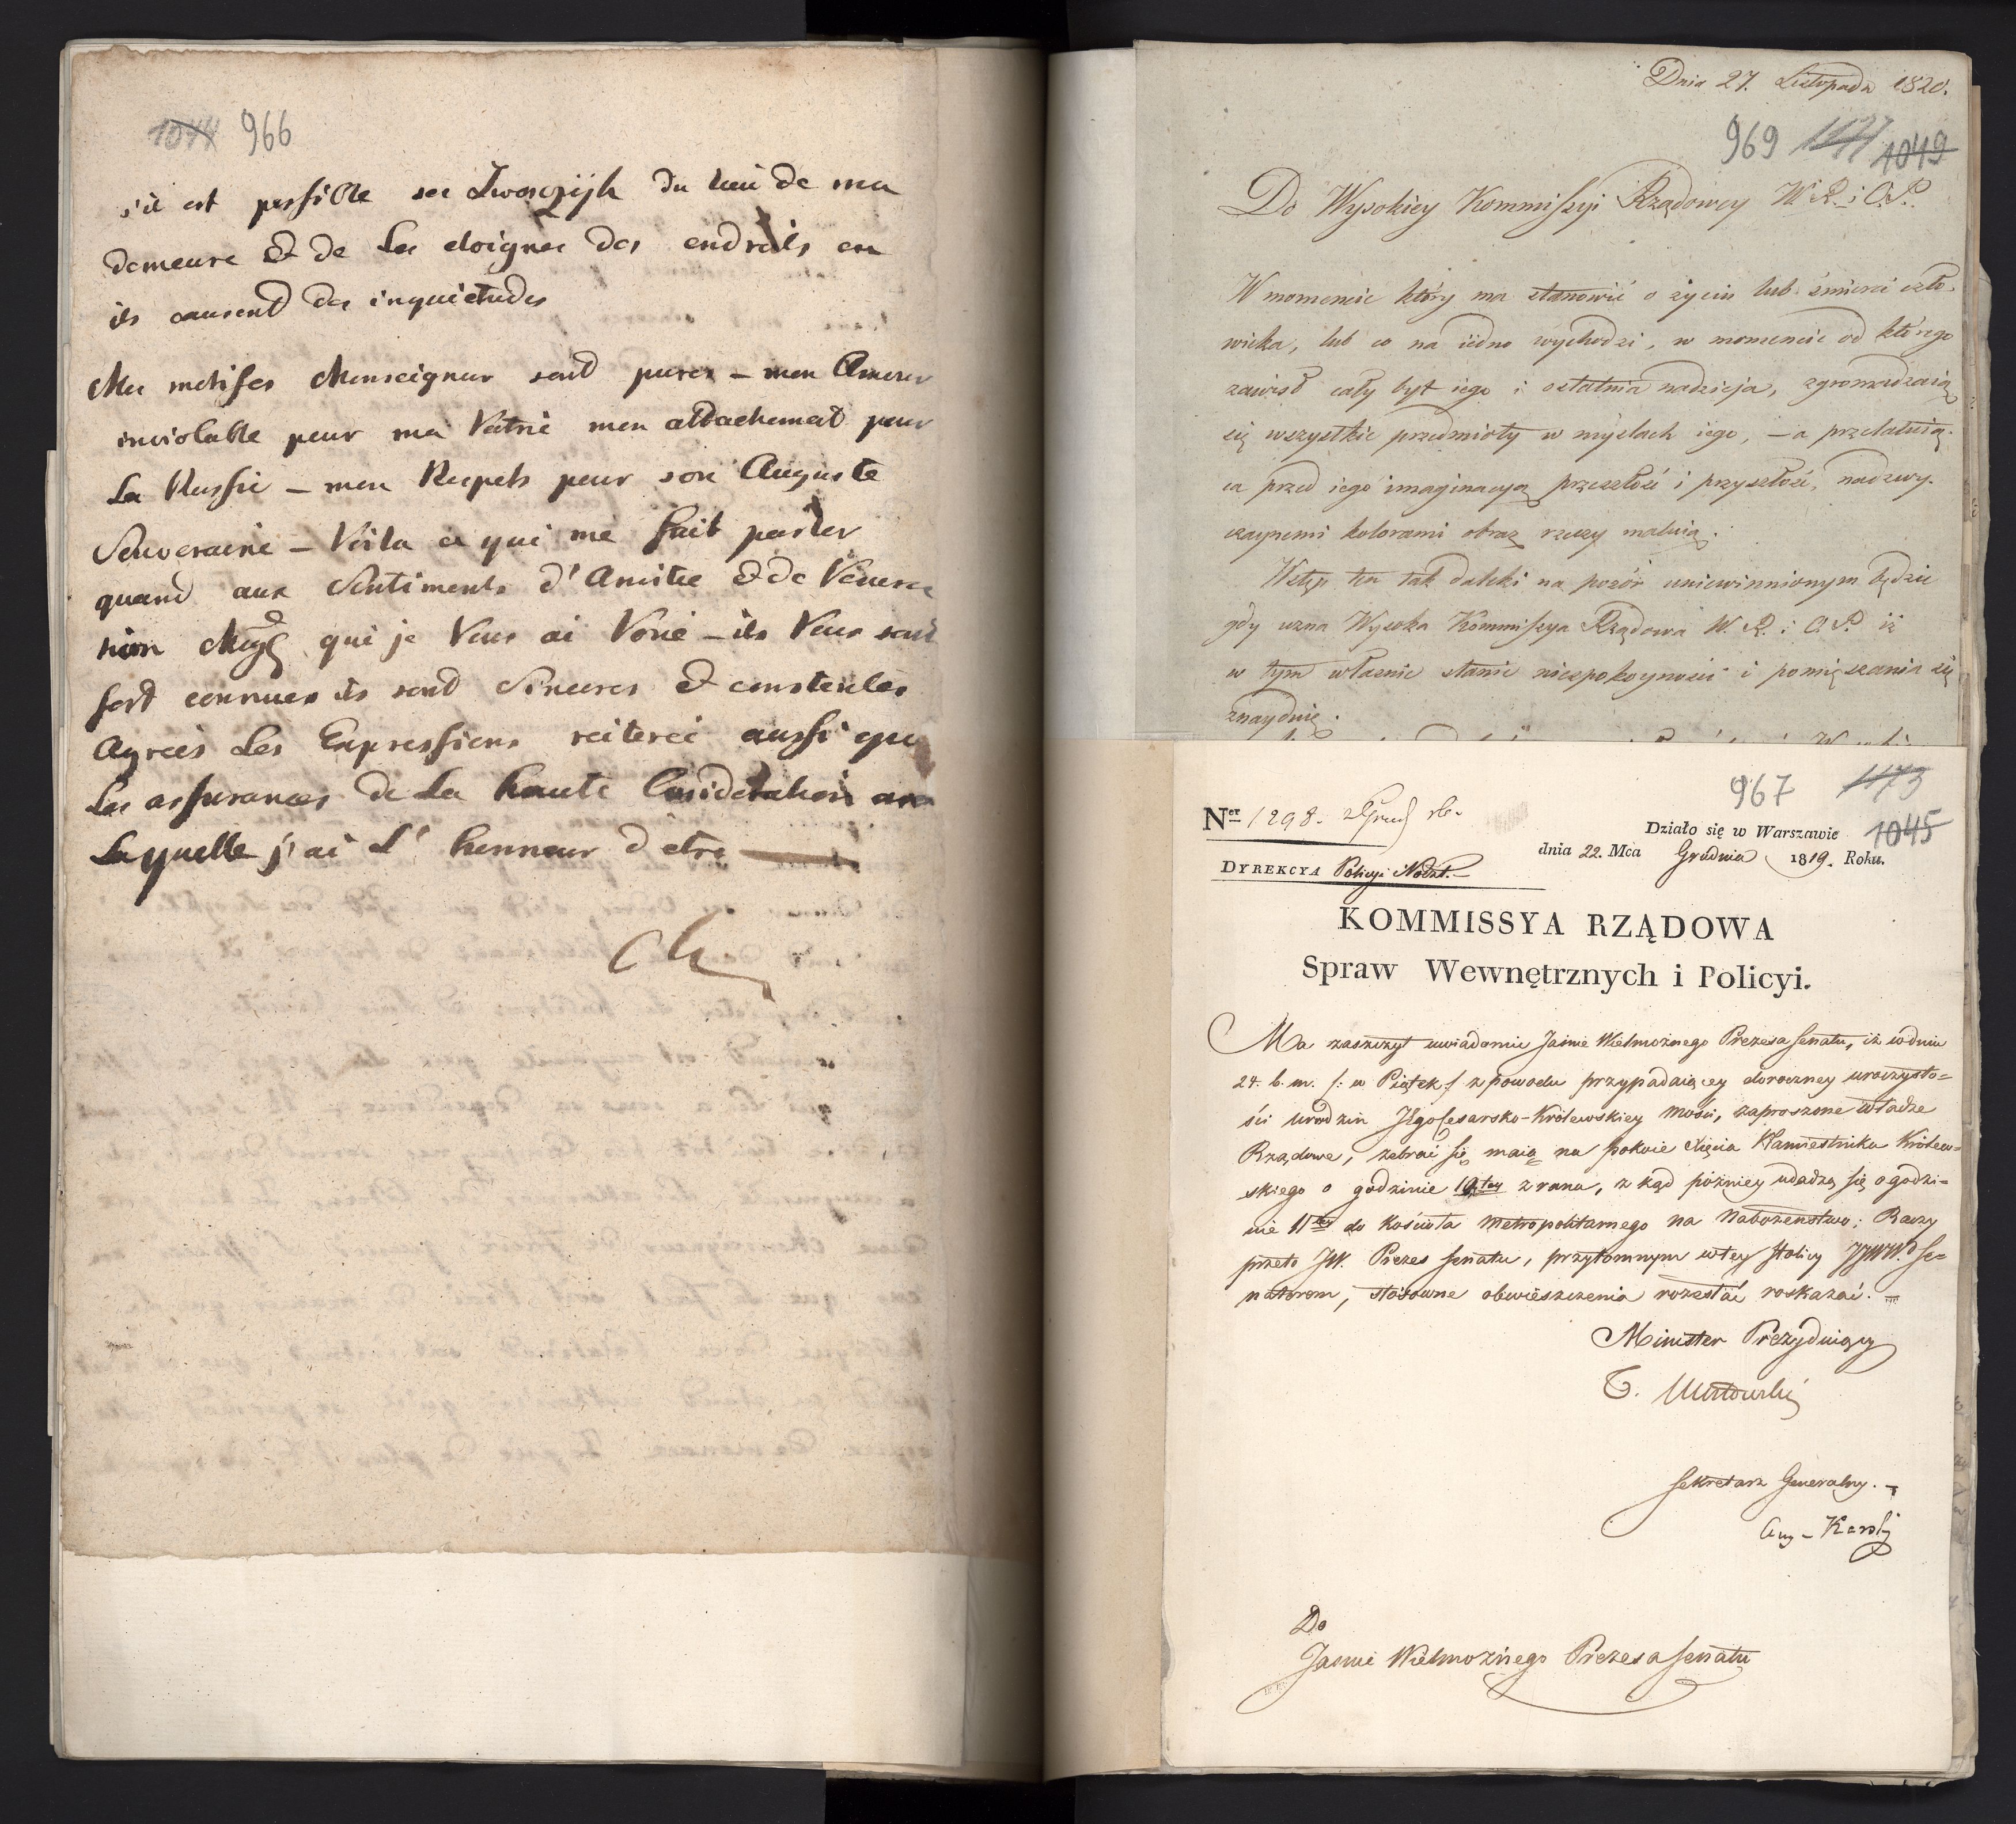 1044 966
s'il est possible ses Dworczyk du lieu de ma
demeure & de les eloigner des endroits ou
ils causent des inquietudes
Mes motifes Monseigneur sont pures – mon Amour
inviolable pour ma Patrie mon attachement pour
La Russie – mon Respets pour son Auguste
Souveraine – Voila ce qui me fait parler
quand aux Sentiments d'Amitie & de Venera
tion Msg qui je Vous ai Voué – ils Vous sont
fort connues ils sont Sinceres & constentes
Agrees Les Expressions reiterei aussi que
Les assurances de La haute Consideration av
Laquelle j'ai L' honneur d'etre
Dnia 27. Listopada 1820.
969 1049
Do Wysokiey Kommissyi Rządowey W. R. i O. P.
W momencie który ma stanowić o życiu lub śmierci czło-
wieka, lub co na iedno wychodzi, w momencie od którego
zawisł cały byt iego i ostatnia nadzieja, zgromadzaią
się wszystkie przedmioty w myślach iego, – a przelatuią-
ca przed iego imaginacyą przeszłość i przyszłość, nadzwy-
czaynemi kolorami obraz rzeczy maluią.
Wstęp ten tak daleki na pozór uniewinnionym będzie
gdy uzna Wysoka Kommissya Rządowa W. R. i O. P. iż
w tym właśnie stanie niespokoyności i pomięszania się
znayduię.
967 1173
1045
Ner 1298.
Działo się w Warszawie
dnia 22. Mca Grudnia 1819. Roku.
DYREKCYA Policyi Nadzl. –
KOMMISSYA RZĄDOWA
Spraw Wewnętrznych i Policyi.
Ma zaszczyt uwiadomić Jaśnie Wielmożnego Prezesa Senatu, iż w dniu
24. b. m. /: w Piątek / z powodu przypadaiącey doroczney uroczysto=
ści urodzin JEgo Cesarsko-Królewskiey Mości, zaproszone władze
Rządowe, zebrać się maią na pokoie Xięcia Namiestnika Królew=
skiego o godzinie 10tey z rana, z kąd późniey udadzą się o godzi=
nie 11tey do Kościoła Metropolitarnego na Nabożeństwo; Raczy
przeto JW. Prezes Senatu, przytomnym w tey Stolicy JJWW. Se=
natorom, stosowne obwieszczenia rozesłać roskazać. –
Minister Prezyduiący
T. Mostowski
Sekretarz Generalny. –
Aug – Karski
Do
Jaśnie Wielmożnego Prezesa Senatu